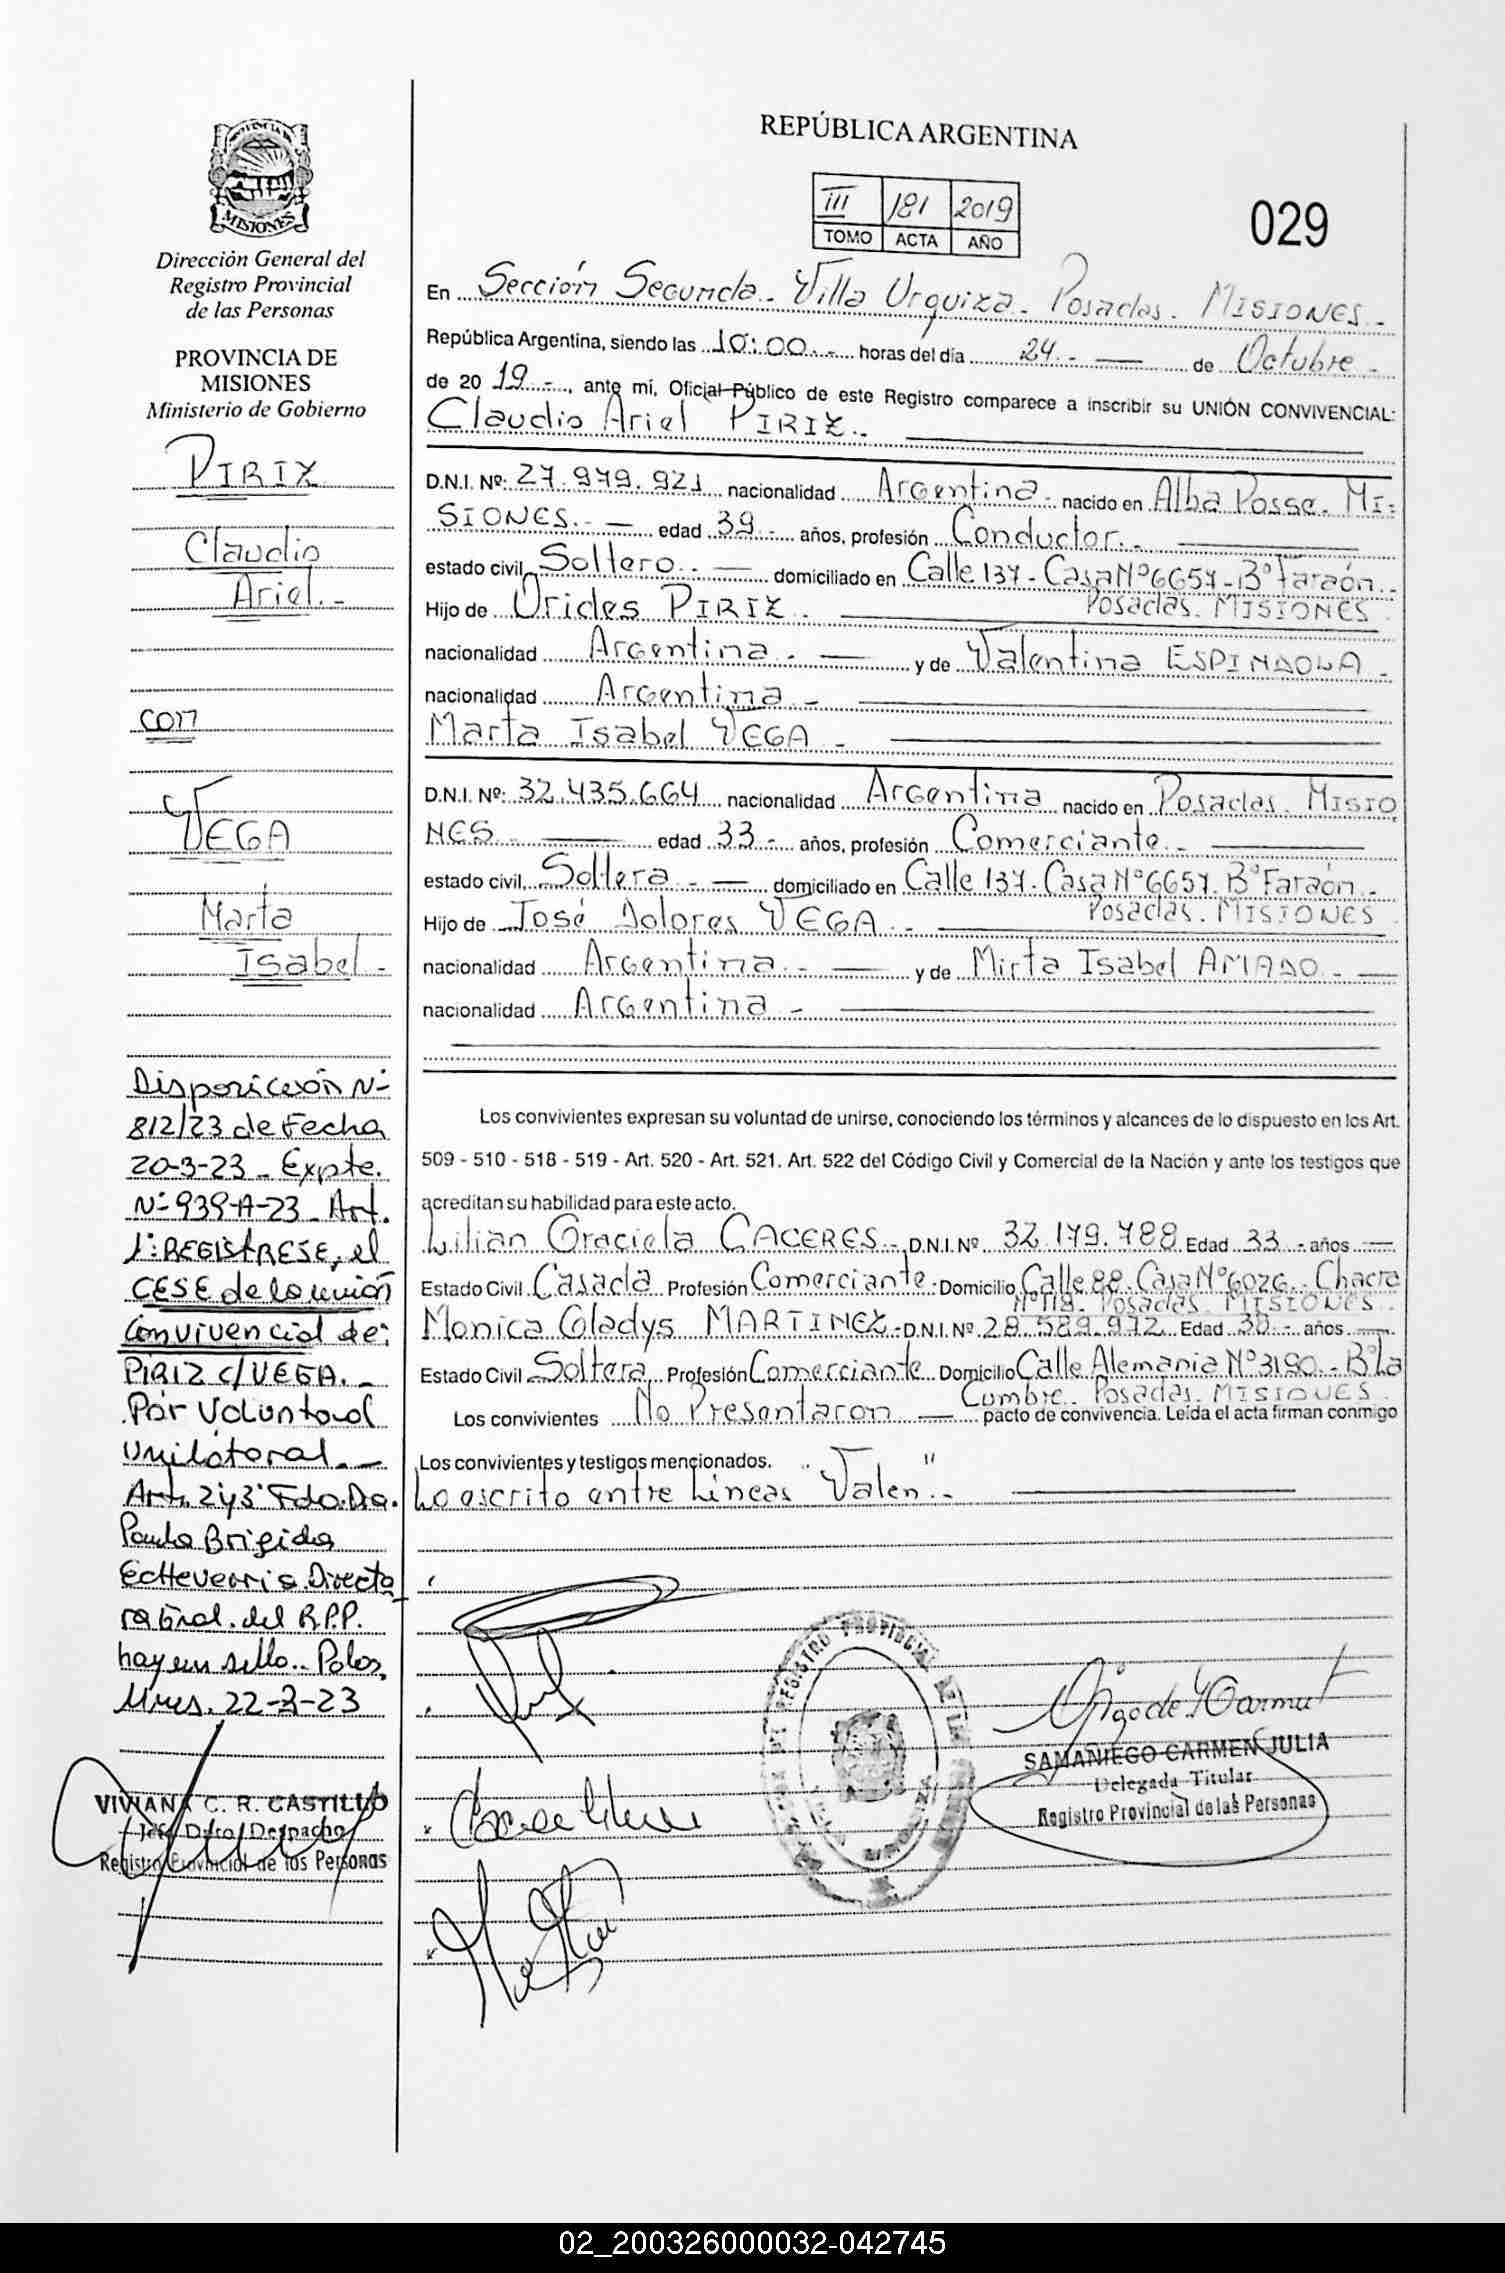 PROVINCIA DE
MISIONES
Dirección General del
Registro Provincial
de las Personas
PROVINCIA DE
MISIONES
Ministerio de Gobierno
PIRIZ
Claudio
Ariel.-
con
VEGA
Marta
Isabel-
Disposición N-
812/23 de Fecha
20-3-23- Expte.
N- 939-A-23- Art.
1: REGISTRESE, el
CESE de la unión
Convivencial de:
PIRIZ c/VEGA.-
Por Voluntad
Unilateral.-
Art. 2 y 3 Fdo. Dra.
Paula Brigida
Echeverria. Directo
ra Gral. del R.P.P.
hay un sello.. Pdas,
Mnes, 22-3-23
VIVIANA C. R. CASTILLO
Jefe Dpto Despacho
Registro Provincial de las Personas
REPÚBLICA ARGENTINA
III 181 2019
TOMO ACTA AÑO
029
En Sección Segunda.. Villa Urquiza. Posadas. MISIONES.-
República Argentina, siendo las 10:00.- horas del día 24.- de Octubre-
de 20 19.-, ante mí, Oficial Público de este Registro comparece a inscribir su UNIÓN CONVIVENCIAL:
Claudio Ariel PIRIZ.
D.N.I. Nº: 27.979.921 nacionalidad Argentina. nacido en Alba Posse. MI=
SIONES.- edad 39.- años, profesión Conductor.-
estado civil Soltero.- domiciliado en Calle 137- Casa Nº 6657- Bº Faraón.
Posadas. MISIONES
Hijo de Orides PIRIZ.
nacionalidad Argentina.- y de Valentina ESPINDOLA-
nacionalidad Argentina-
Marta Isabel VEGA-
D.N.I. Nº: 32.435.664 nacionalidad Argentina nacido en Posadas. MISIO
NES edad 33- años, profesión Comerciante.-
estado civil Soltera.- domiciliado en Calle 137. Casa Nº 6657. Bº Faraón-
Posadas. MISIONES
Hijo de José Dolores VEGA.-
nacionalidad Argentina.- y de Mirta Isabel AMADO.-
nacionalidad Argentina-
Los convivientes expresan su voluntad de unirse, conociendo los términos y alcances de lo dispuesto en los Art.
509 - 510 - 518 - 519 - Art. 520 - Art. 521. Art. 522 del Código Civil y Comercial de la Nación y ante los testigos que
acreditan su habilidad para este acto.
Lilian Graciela CACERES- D.N.I. Nº 32.179.788 Edad 33.- años
Estado Civil Casada Profesión Comerciante. Domicilio Calle 88. Casa Nº 6026. Chacra
Nº 118. Posadas. MISIONES.
Monica Gladys MARTINEZ- D.N.I. Nº 28.589.972 Edad 38- años
Estado Civil Soltera Profesión Comerciante Domicilio Calle Alemania Nº 3180.- Bº La
Cumbre. Posadas. MISIONES.
Los convivientes No Presentaron pacto de convivencia. Leída el acta firman conmigo
Los convivientes y testigos mencionados.
Lo escrito entre Líneas "Valen".-
REGISTRO PROVINCIAL DE LAS
SAMANIEGO CARMEN JULIA
Delegada Titular
Registro Provincial de las Personas
02_200326000032-042745